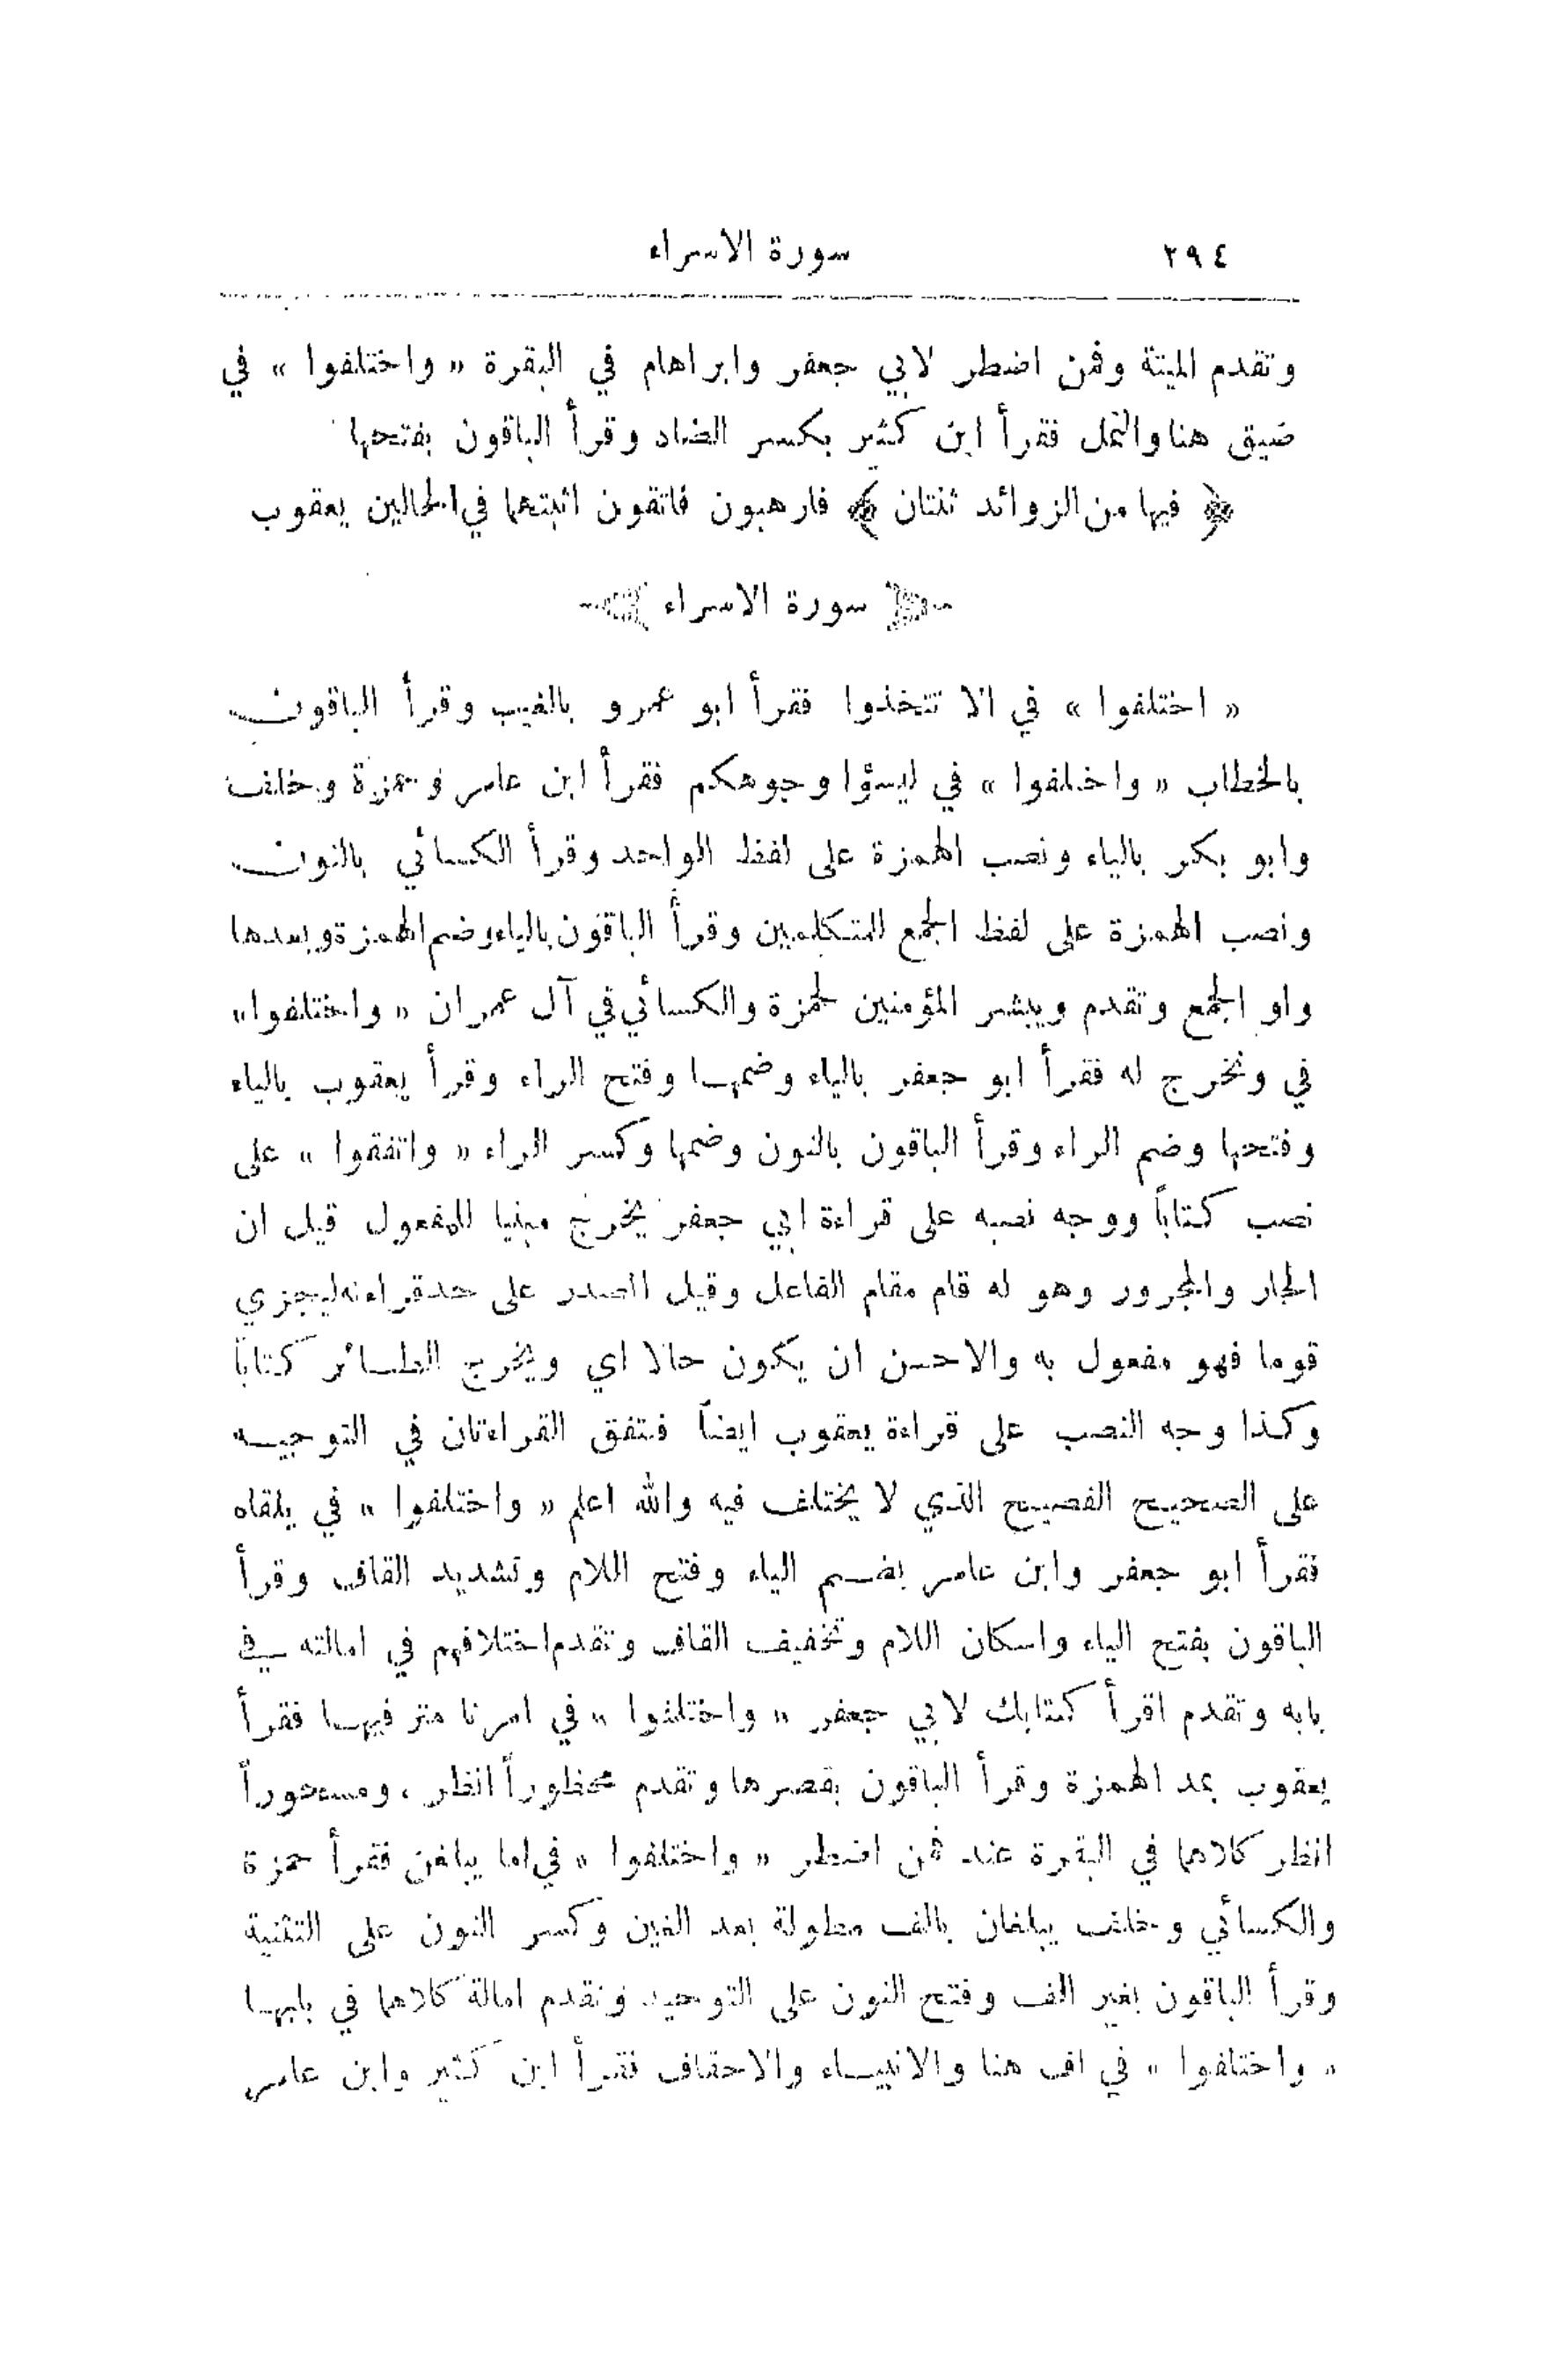 ٢٩٤ سورة الاسراء
وتقدم الميتة وفمن اضطر لابي جعفر وابراهام في البقرة « واختلفوا » في
ضيق هنا والنمل فقرأ ابن كثير بكسر الضاد وقرأ الباقون بفتحها
﴿ فيها من الزوائد ثنتان ﴾ فارهبون فاتقون اثبتهما في الحالين يعقوب
سورة الاسراء
« اختلفوا » في الا تتخذوا فقرأ ابو عمرو بالغيب وقرأ الباقون
بالخطاب « واختلفوا » في ليسؤا وجوهكم فقرأ ابن عامر وحمزة وخلف
وابو بكر بالياء ونصب الهمزة على لفظ الواحد وقرأ الكسائي بالنون
ونصب الهمزة على لفظ الجمع للمتكلمين وقرأ الباقون بالياء وضم الهمزة وبعدها
واو الجمع وتقدم ويبشر المؤمنين لحمزة والكسائي في آل عمران « واختلفوا »
في ونخرج له فقرأ ابو جعفر بالياء وضمها وفتح الراء وقرأ يعقوب بالياء
وفتحها وضم الراء وقرأ الباقون بالنون وضمها وكسر الراء « واتفقوا » على
نصب كتاباً ووجه نصبه على قراءة ابي جعفر يخرج مبنيا للمفعول قيل ان
الجار والمجرور وهو له قام مقام الفاعل وقيل المصدر على حد قراءته ليجزي
قوما فهو مفعول به والاحسن ان يكون حالا اي ويخرج الطائر كتاباً
وكذا وجه النصب على قراءة يعقوب ايضاً فتتفق القراءتان في التوجيه
على الصحيح الفصيح الذي لا يختلف فيه والله اعلم « واختلفوا » في يلقاه
فقرأ ابو جعفر وابن عامر بضم الياء وفتح اللام وتشديد القاف وقرأ
الباقون بفتح الياء واسكان اللام وتخفيف القاف وتقدم اختلافهم في امالته في
بابه وتقدم اقرأ كتابك لابي جعفر « واختلفوا » في امرنا متر فيها فقرأ
يعقوب بمد الهمزة وقرأ الباقون بقصرها وتقدم محظوراً انظر ، ومسحوراً
انظر كلاهما في البقرة عند فمن اضطر « واختلفوا » في اما يبلغن فقرأ حمزة
والكسائي وخلف يبلغان بالف مطولة بعد الغين وكسر النون على التثنية
وقرأ الباقون بغير الف وفتح النون على التوحيد وتقدم امالة كلاهما في بابها
« واختلفوا » في اف هنا والانبياء والاحقاف فقرأ ابن كثير وابن عامر